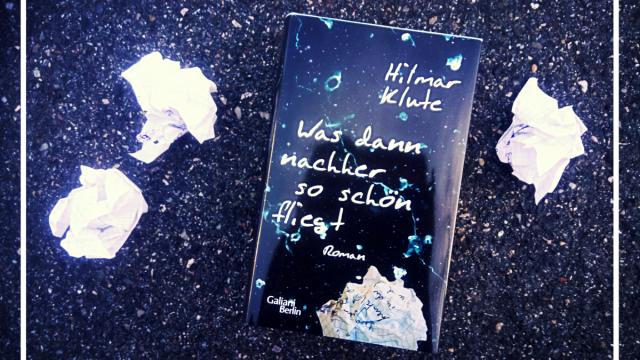 Hilmar
Klute
Was dann
nachher
so schön
fliegt
Roman
Galiani
Berlin